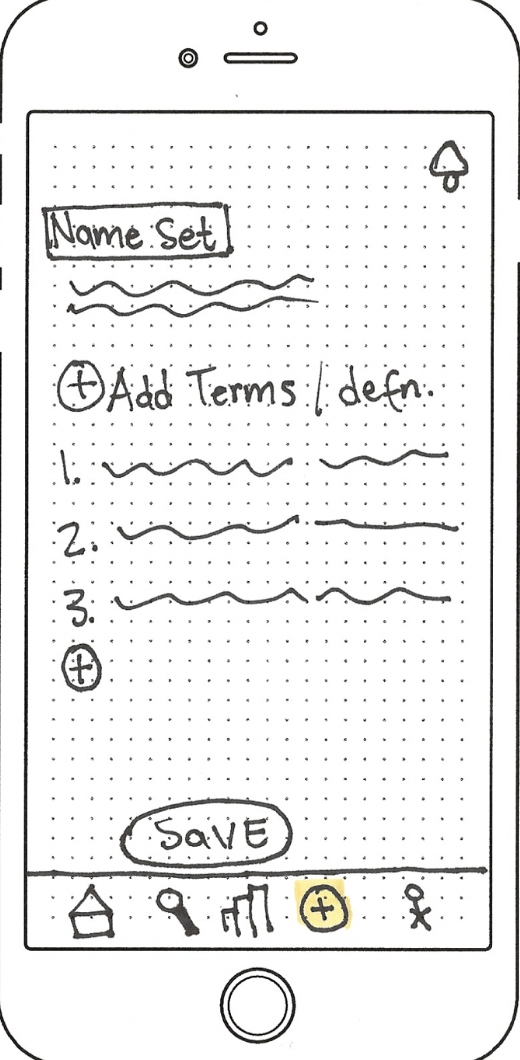 Name Set
Add Terms / defn.
1.
2.
3.
SAVE